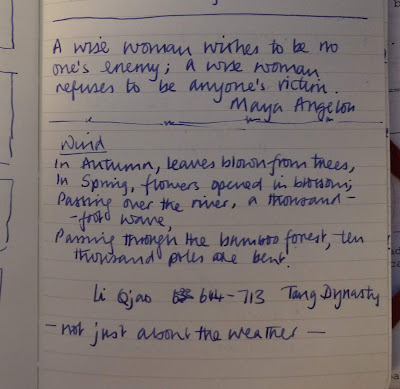 A wise woman wishes to be no
one's enemy; a wise woman
refuses to be anyone's victim.
Maya Angelou
Wind
In Autumn, leaves blown from trees,
In Spring, flowers opened in blossom;
Passing over the river, a thousand-
-foot wave,
Passing through the bamboo forest, ten
thousand poles are bent.
Li Qiao 644-713 Tang Dynasty
- not just about the weather -